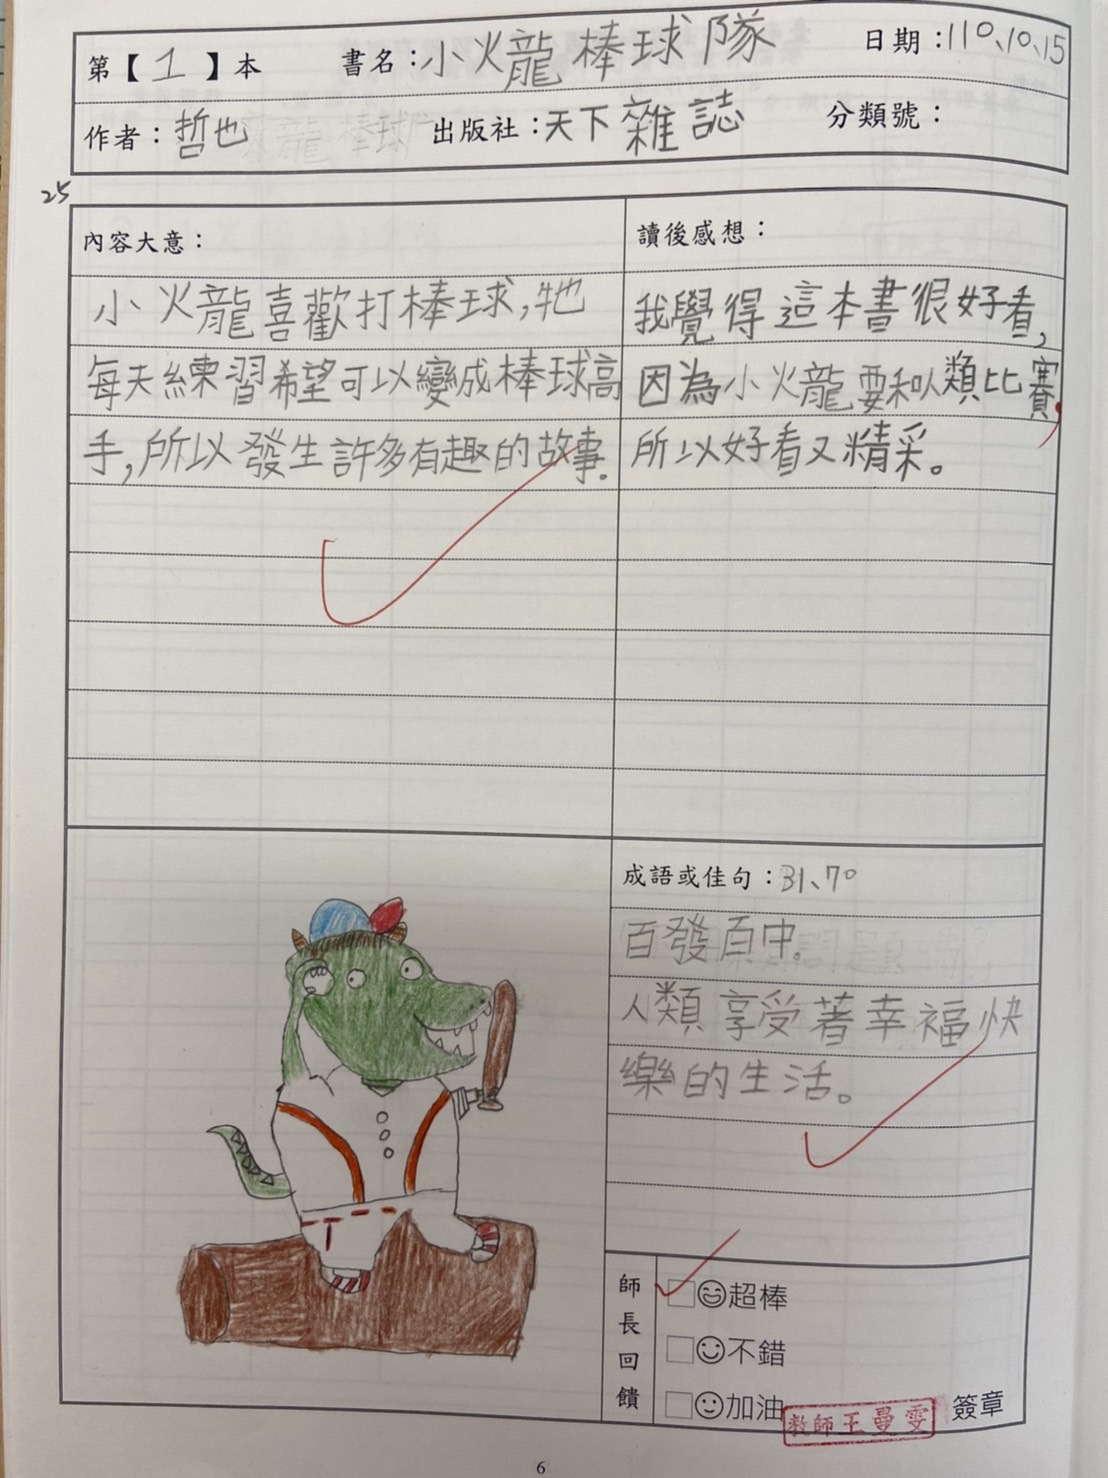 第【1】本 書名：小火龍棒球隊 日期：110、10、15
作者：哲也 出版社：天下雜誌 分類號：
25
內容大意：
小火龍喜歡打棒球，牠
每天練習希望可以變成棒球高
手，所以發生許多有趣的故事。
讀後感想：
我覺得這本書很好看，
因為小火龍要和人類比賽，
所以好看又精采。
成語或佳句：31、70
百發百中。
人類享受著幸福快
樂的生活。
師長回饋
超棒
不錯
加油
教師王曼雯 簽章
6